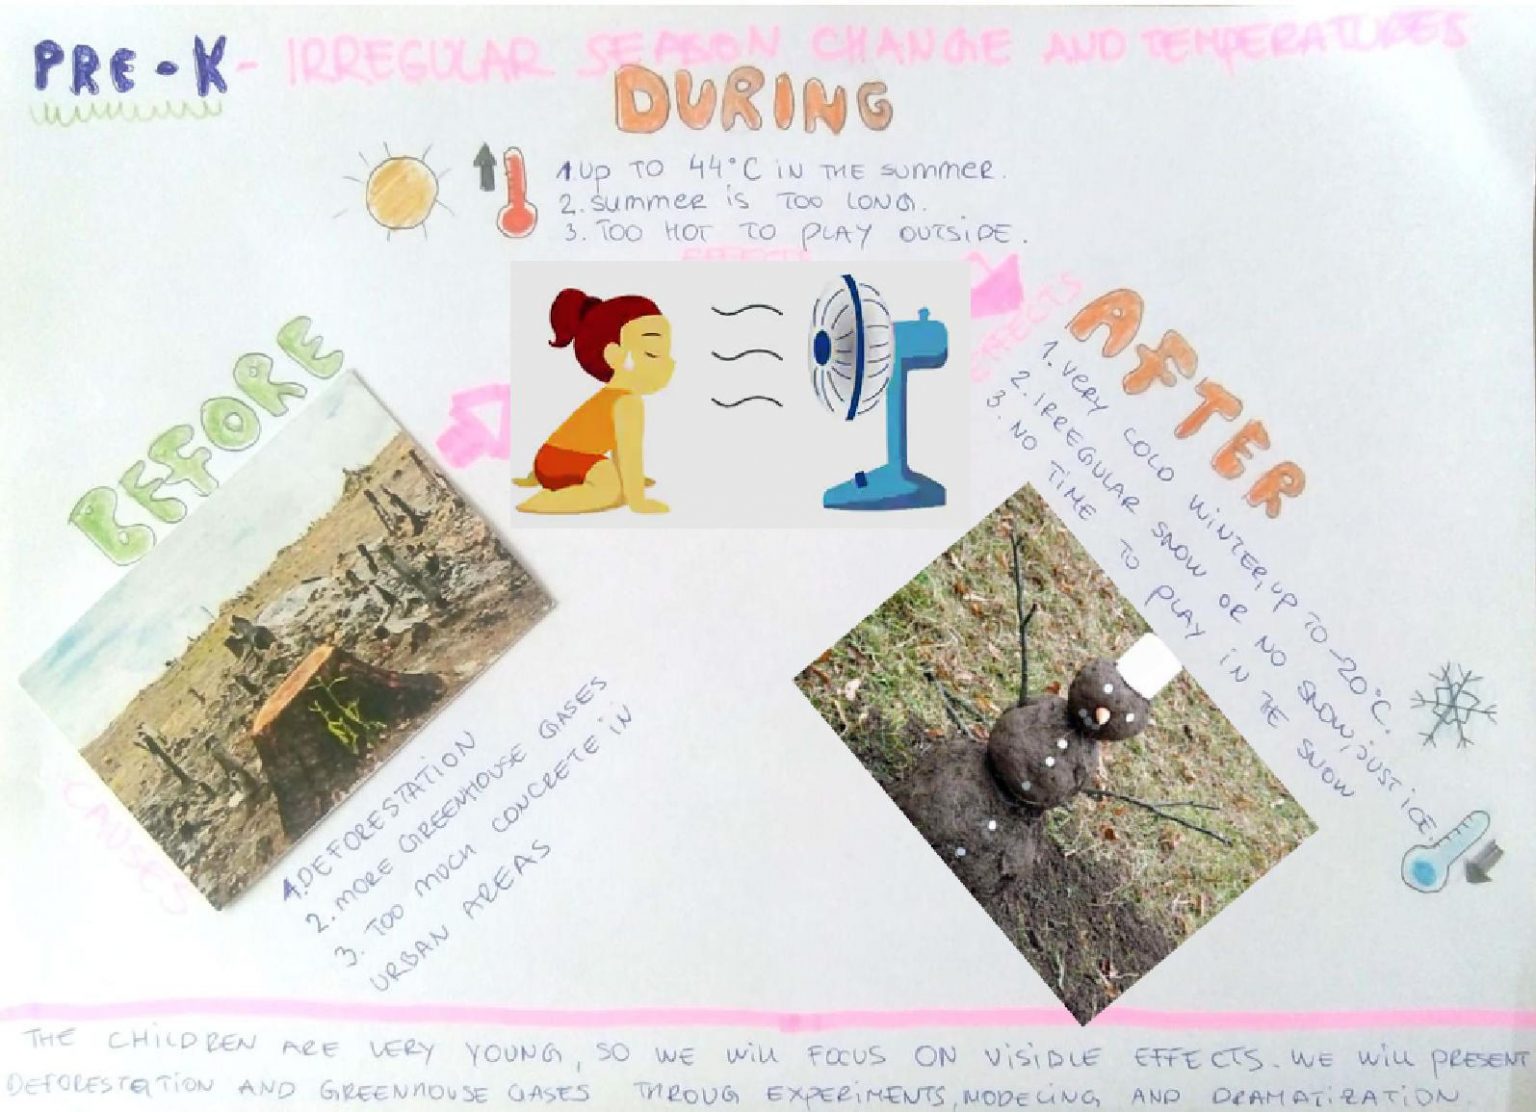 PRE-K - IRREGULAR SEASON CHANGE AND TEMPERATURES
DURING
1. UP TO 44°C IN THE SUMMER.
2. SUMMER IS TOO LONG.
3. TOO HOT TO PLAY OUTSIDE.
EFFECTS
BEFORE
CAUSES
1. DEFORESTATION
2. MORE GREENHOUSE GASES
3. TOO MUCH CONCRETE IN
URBAN AREAS
AFTER
EFFECTS
1. VERY COLD WINTER, UP TO -20°C.
2. IRREGULAR SNOW OR NO SNOW, JUST ICE.
3. NO TIME TO PLAY IN THE SNOW
THE CHILDREN ARE VERY YOUNG, SO WE WILL FOCUS ON VISIBLE EFFECTS. WE WILL PRESENT
DEFORESTATION AND GREENHOUSE GASES THROUG EXPERIMENTS, MODELING AND DRAMATIZATION.